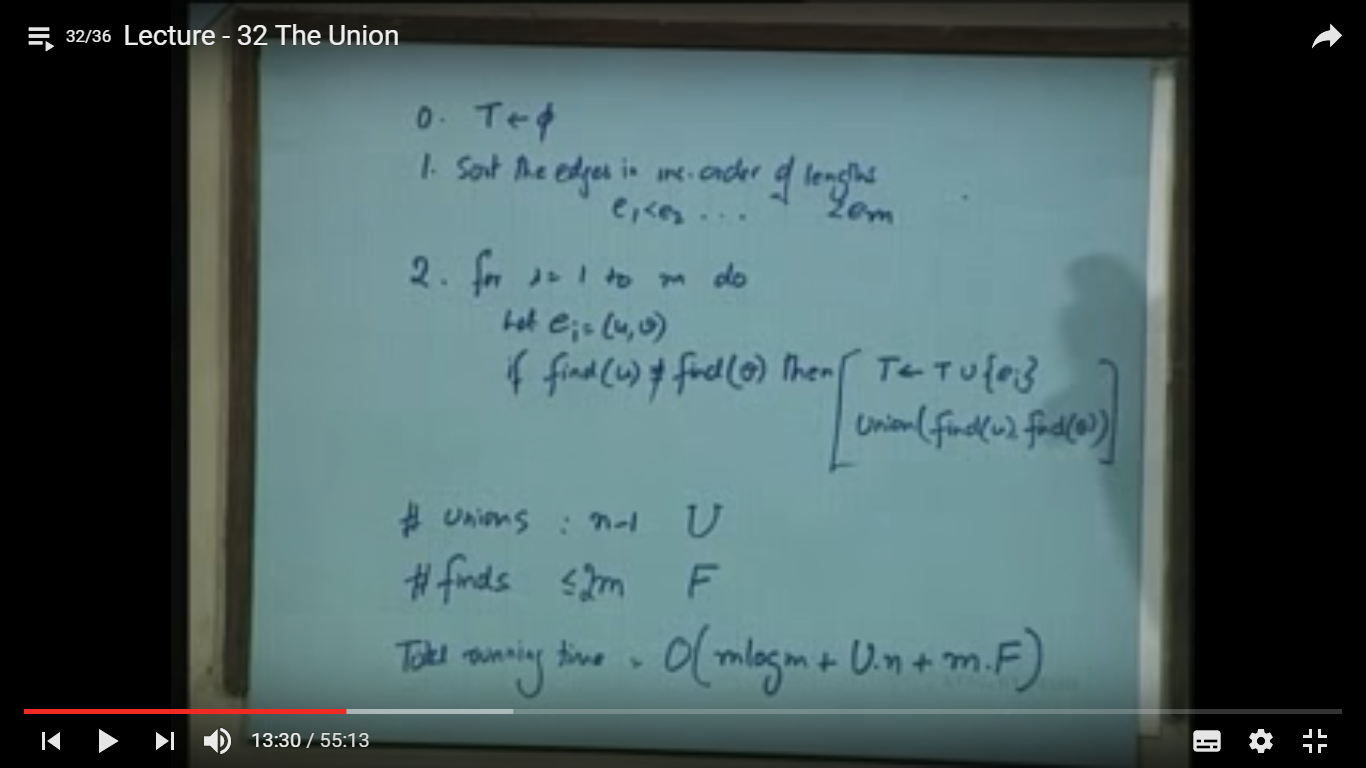 32/36 Lecture - 32 The Union
0. T ← φ
1. Sort the edges in inc. order of lengths
e₁<e₂ ... <em
2. for i = 1 to m do
Let eᵢ = (u,v)
if find(u) ≠ find(v) then [ T ← T ∪ {eᵢ}
Union(find(u), find(v)) ]
# unions : n-1 U
# finds ≤2m F
Total running time = O(mlogm + U.n + m.F)
13:30 / 55:13